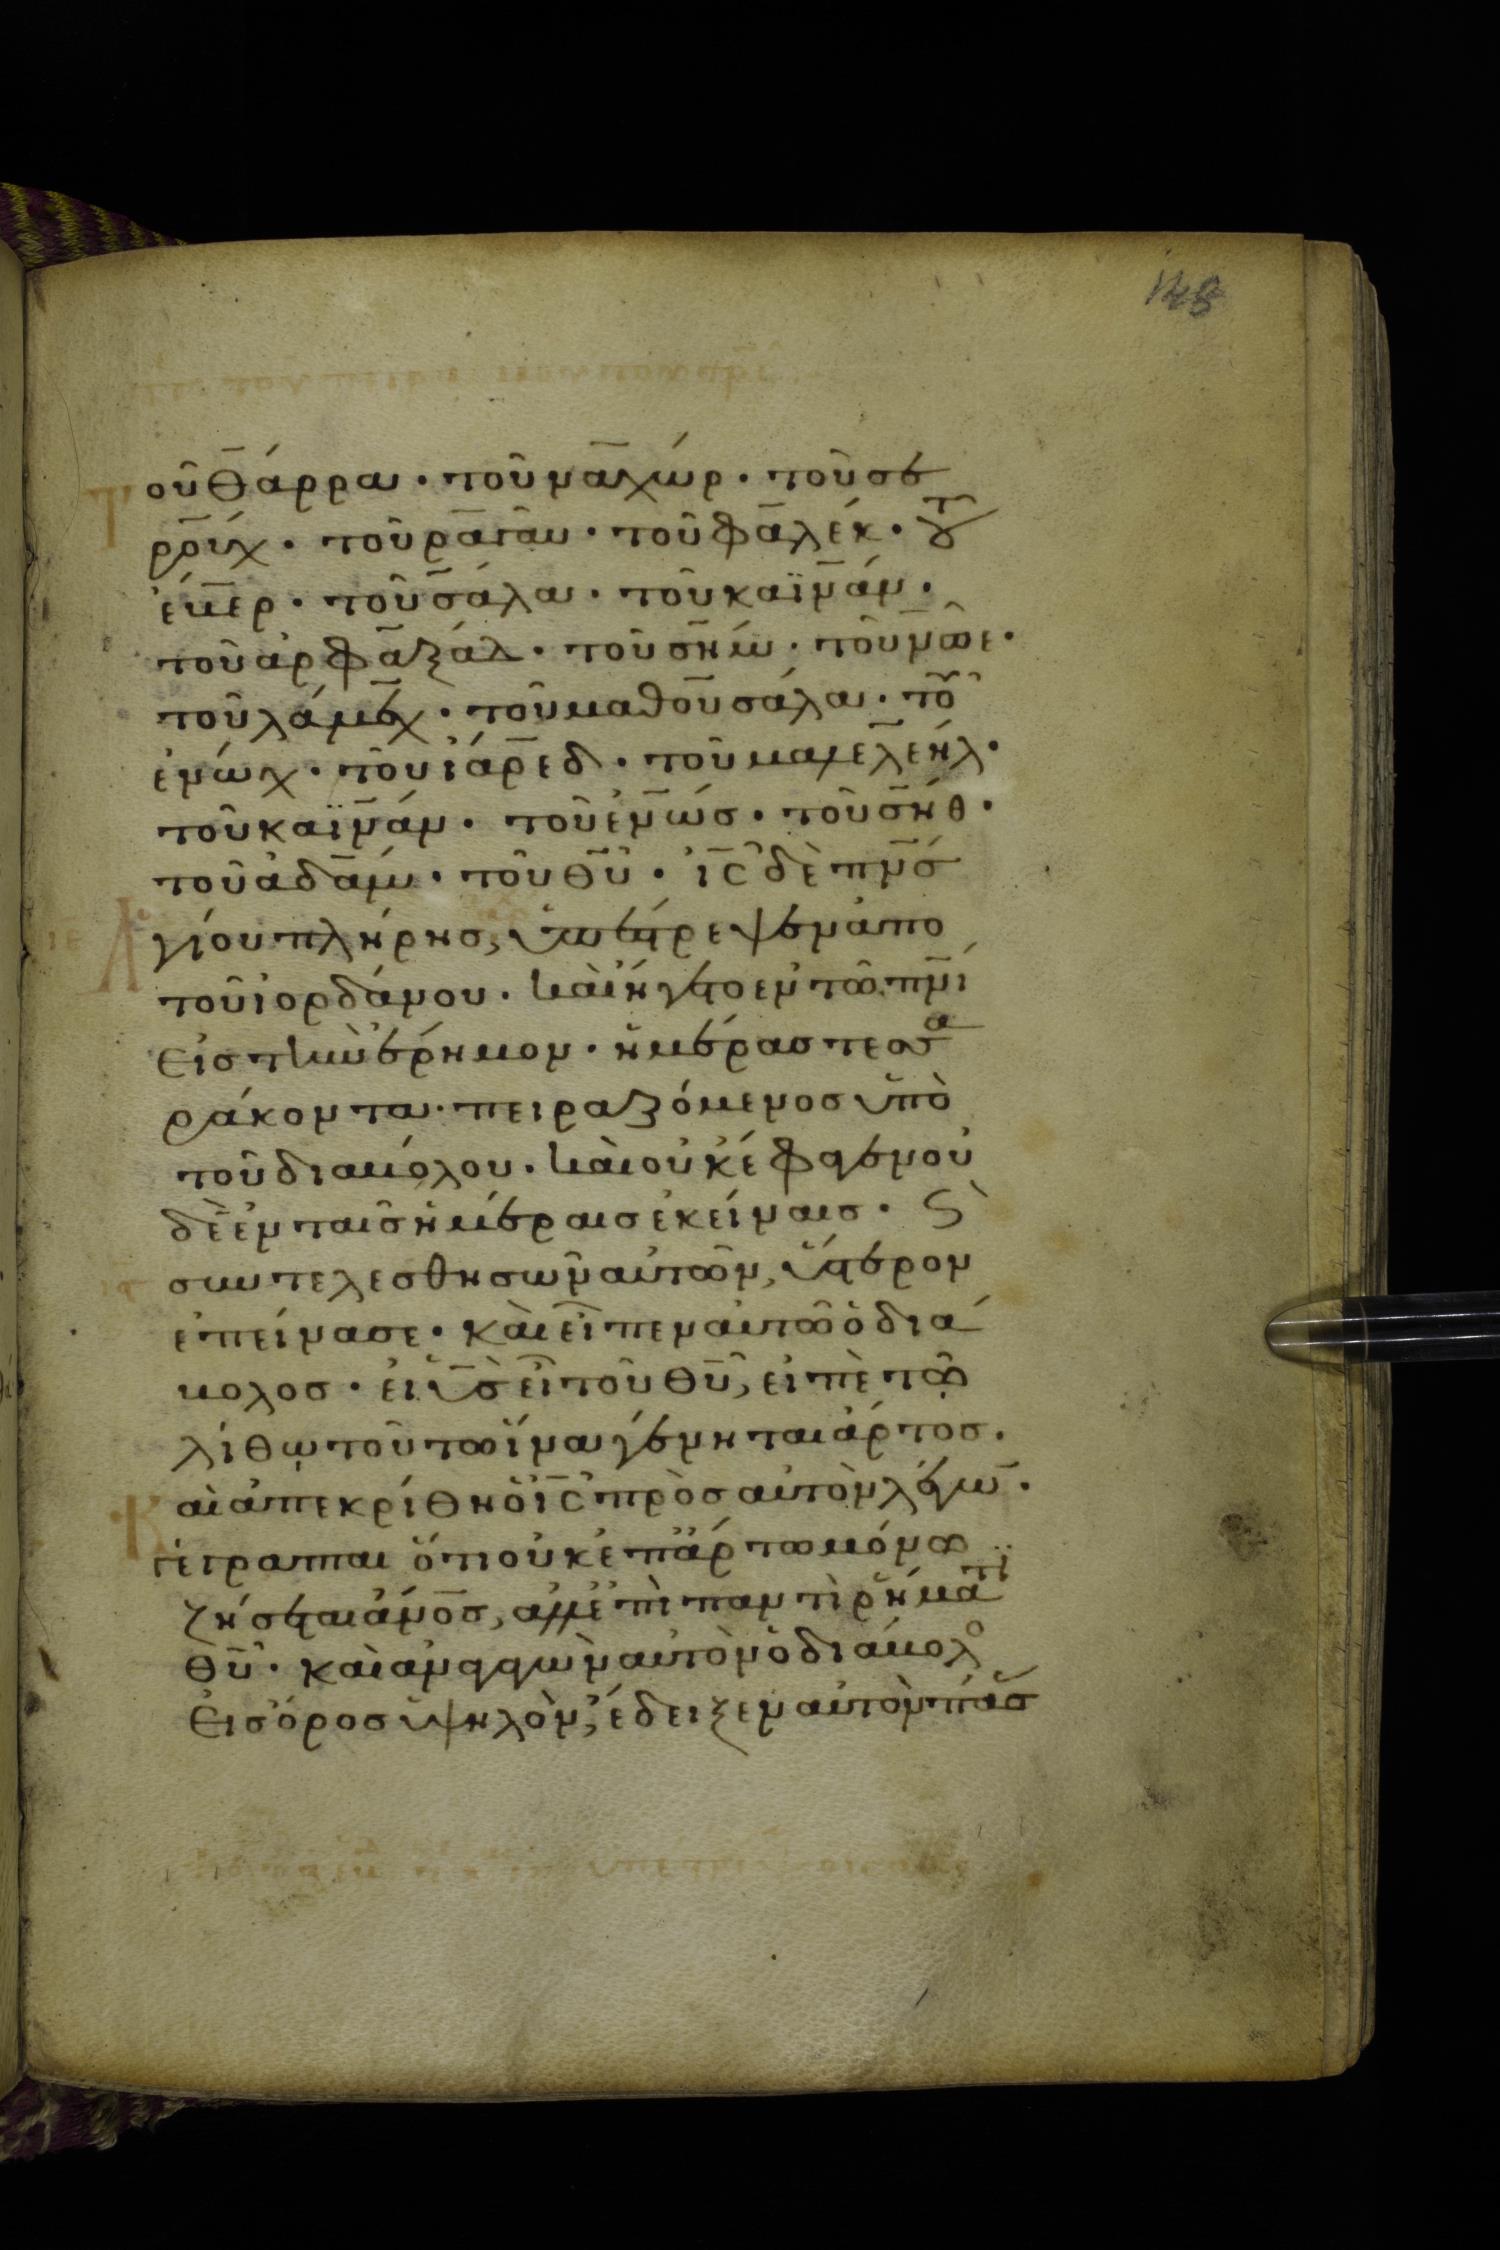 148
Τοῦ θάρρα · τοῦ ναχώρ · τοῦ σε
ρούχ · τοῦ ραγαῦ · τοῦ φαλέκ · τοῦ
ἐβερ · τοῦ σάλα · τοῦ καϊνάν ·
τοῦ ἀρφαξάδ · τοῦ σήμ · τοῦ νῶε ·
τοῦ λάμεχ · τοῦ μαθουσάλα · τοῦ
ἐνώχ · τοῦ ἰάρεδ · τοῦ μαλελεήλ ·
τοῦ καϊνάν · τοῦ ἐνώσ · τοῦ σήθ ·
τοῦ ἀδάμ · τοῦ θ̅υ̅ · ἰ̅ς̅ δὲ π̅ν̅σ̅
ιε Ἁγίου πλήρησ, ὑπέστρεψεν ἀπο
τοῦ ἰορδάνου · καὶ ἤγετο ἐν τῶ π̅ν̅ι̅
εἰσ τὴν ἔρημον · ἡμέρασ τεσσα
ράκοντα · πειραζόμενοσ ὑπὸ
τοῦ διαβόλου · καὶ οὐκ ἔφαγεν οὐ
δὲν ἐν ταῖσ ἡμέραισ ἐκείναισ · ϛ̀
ιϛ συντελεσθησῶν αὐτῶν, ὕστερον
ἐπείνασε · καὶ εἶπεν αὐτῶ ὁ διά
βολοσ · εἰ υ̅σ̅ εἶ τοῦ θ̅υ̅, εἰπὲ τῶ
λίθῳ τούτω ἵνα γένηται ἄρτοσ ·
Καὶ ἀπεκρίθη ὁ ἰ̅ς̅ πρὸσ αὐτὸν λέγων ·
γέγραπται ὅτι οὐκ ἐπ ἄρτω μόνω
ζήσεται ἀ̅ν̅ο̅σ̅, ἀλλ ἐπὶ παντὶ ῥήματι
θ̅υ̅ · καὶ ἀναγαγὼν αὐτὸν ὁ διάβολοσ
εἰσ ὄροσ ὑψηλὸν, ἔδειξεν αὐτὸν πάσ